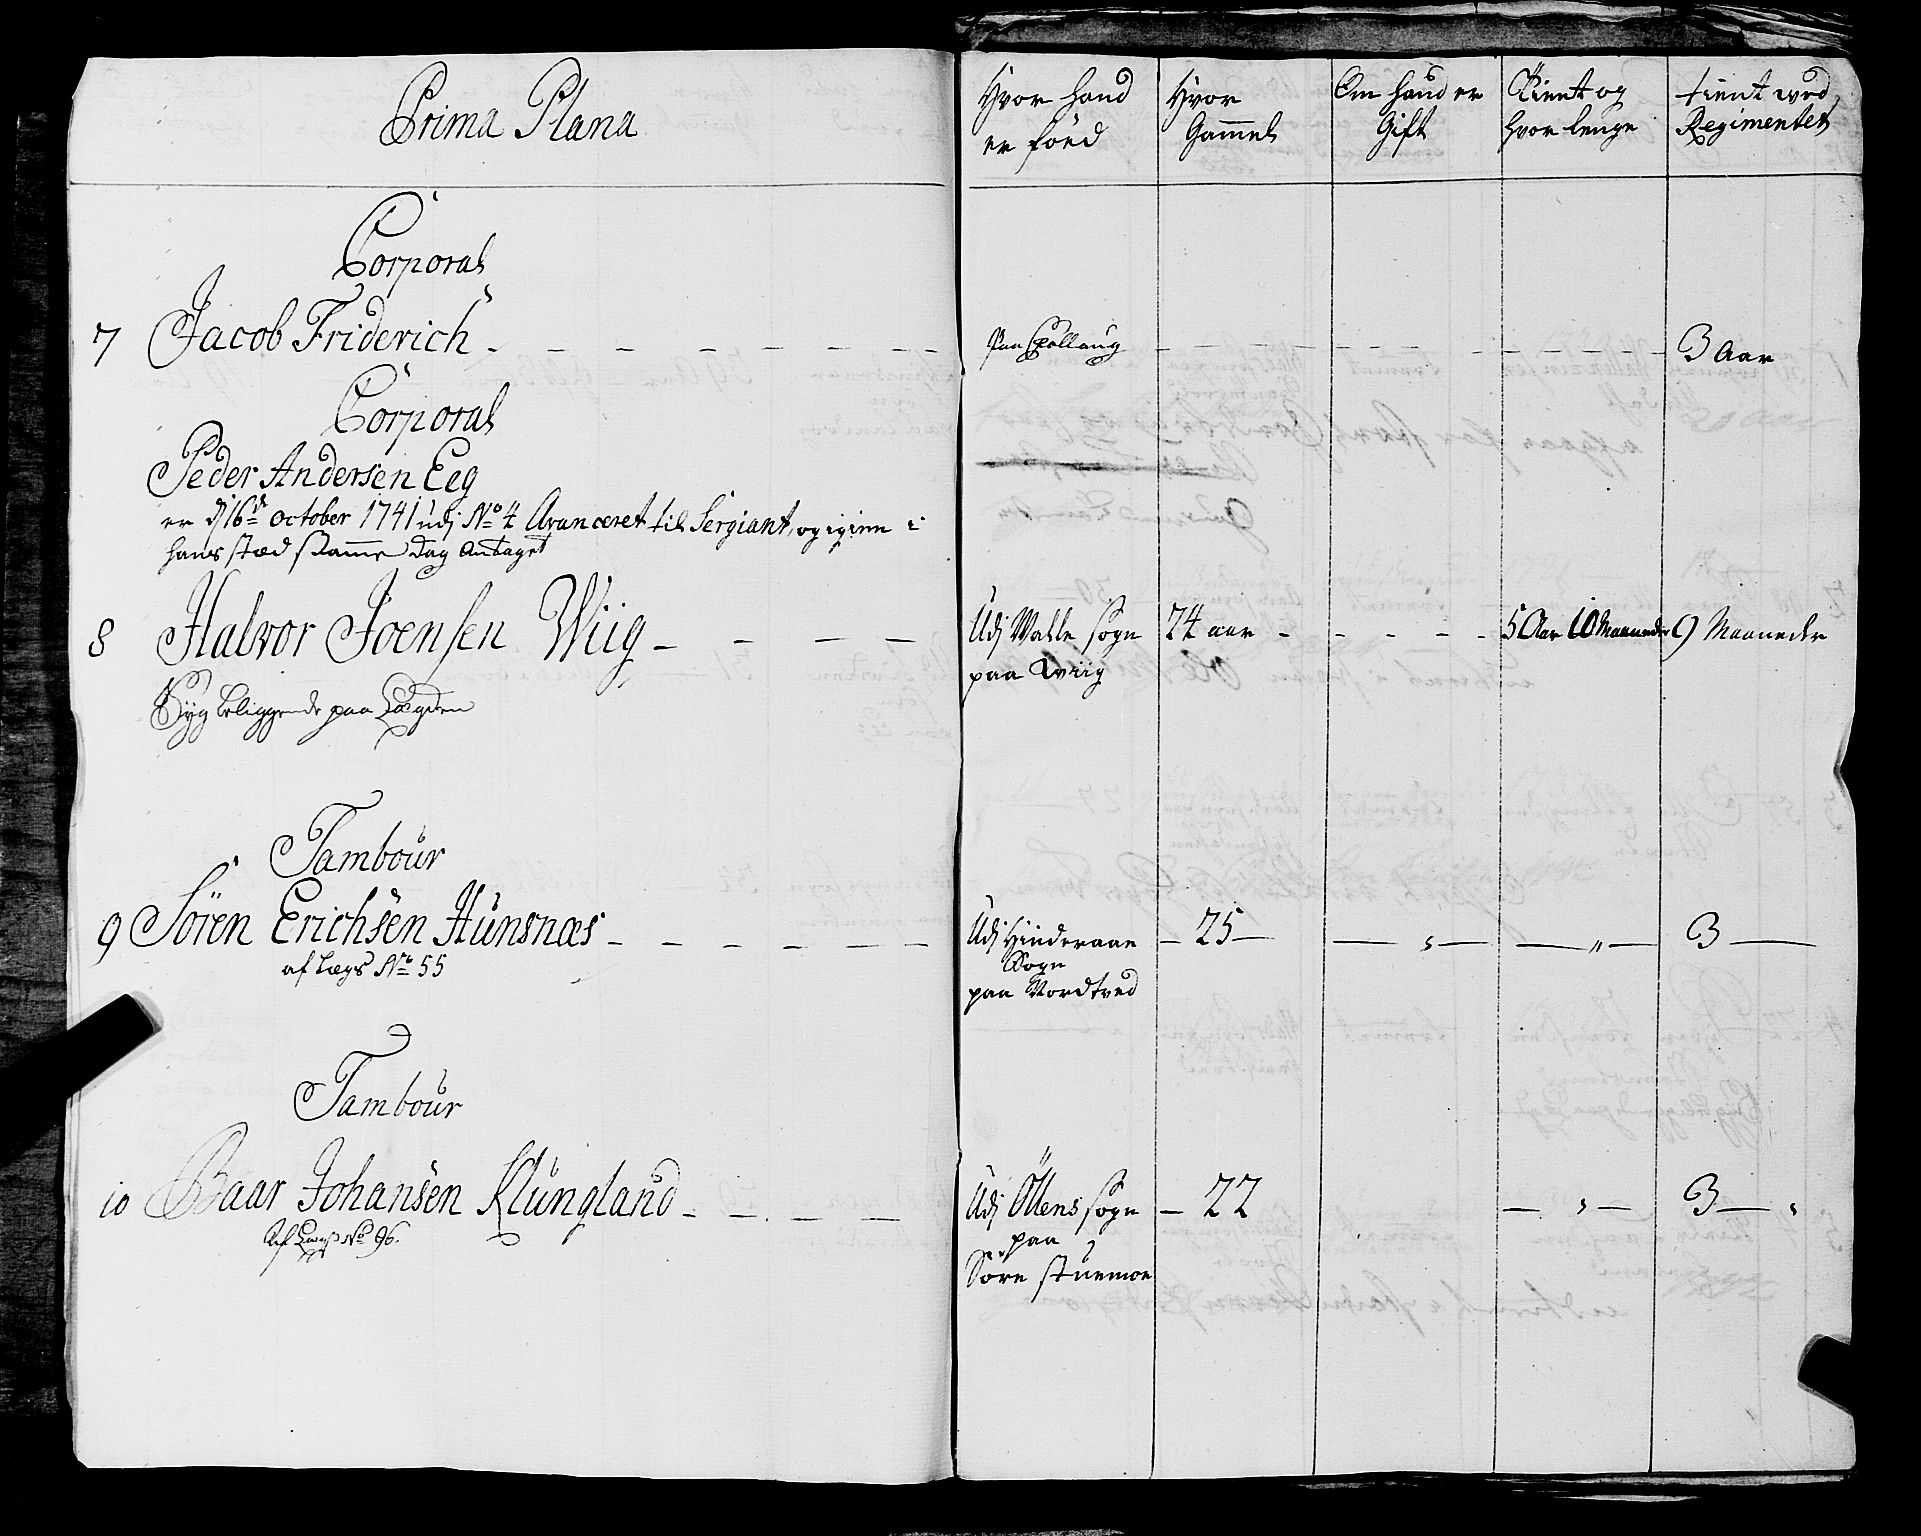 Prima Plana
Corporal
7 Jacob Friderich
Corporal
Peder Andersen Eeg
er d 16de October 1741 udj No 4 Avanceret til Sergiant, og igien i
hans stæd samme Dag Antaget
8 Halvor Joensen Wiig
Syg beliggende paa Lægden
Tambour
9 Sören Erichsen Hunsnæs
af Lægs No 55
Tambour
10 Baar Johansen Klungland
Af Lægs No 96.
Hvor hand
er föed
Hvor
Gammel
Om hand er
Gift
Tient og
hvor lenge
tient ved
Regimentet
Paa
3 Aar
Udj Walle sogn
paa Wiig
24 aar
5 Aar 10 Maaneder
9 Maaneder
Udj Hinderaae
Sogn
paa Nordtved
25
3
Udj Ölens sogn
paa
Söre stuemoe
22
3